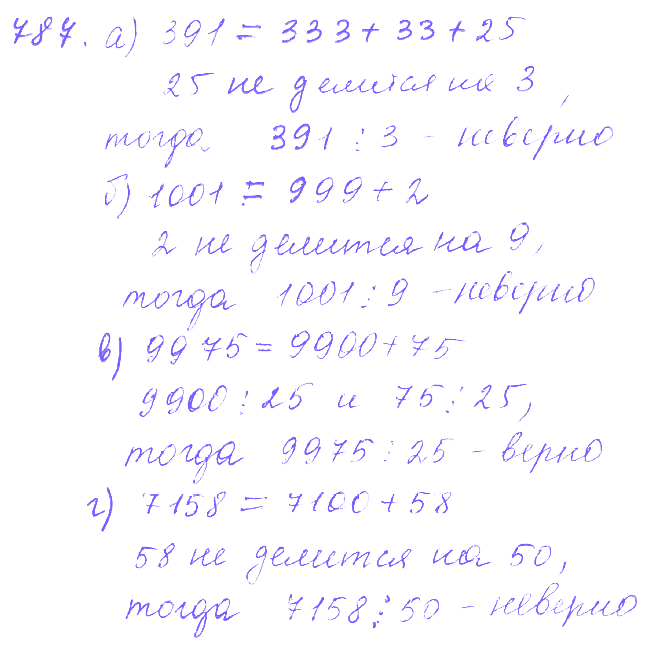 787. а) 391 = 333 + 33 + 25
25 не делится на 3,
тогда 391 ⋮ 3 - неверно
б) 1001 = 999 + 2
2 не делится на 9,
тогда 1001 ⋮ 9 - неверно
в) 9975 = 9900 + 75
9900 ⋮ 25 и 75 ⋮ 25,
тогда 9975 ⋮ 25 - верно
г) 7158 = 7100 + 58
58 не делится на 50,
тогда 7158 ⋮ 50 - неверно